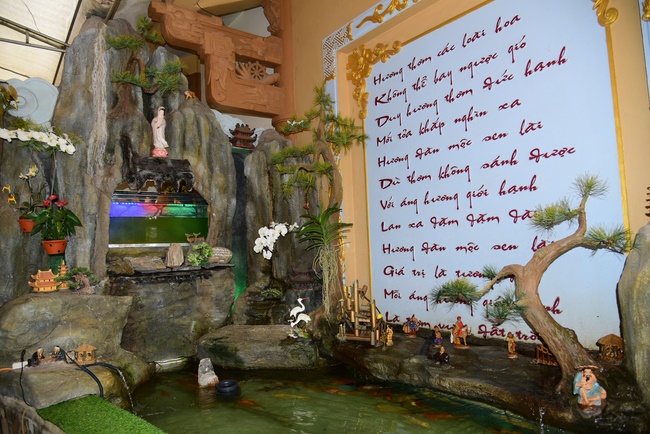 Hương thơm các loài hoa
Không thể bay ngược gió
Duy hương thơm đức hạnh
Mới tỏa khắp nghìn xa
Hương dẫu mộc sen lài
Dù thơm không sánh được
Với áng hương giới hạnh
Lan xa dặm dặm dài
Hương dẫu mộc sen lài
Giá trị là
Mỗi áng hương giới hạnh
Là